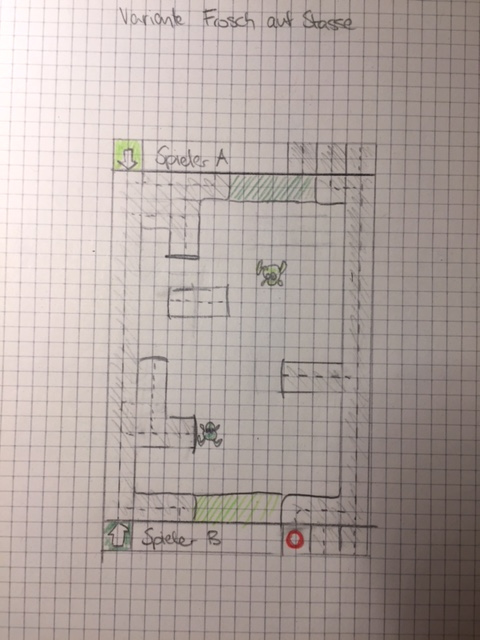 Variante Frosch auf Stasse
Spieler A
Spieler B